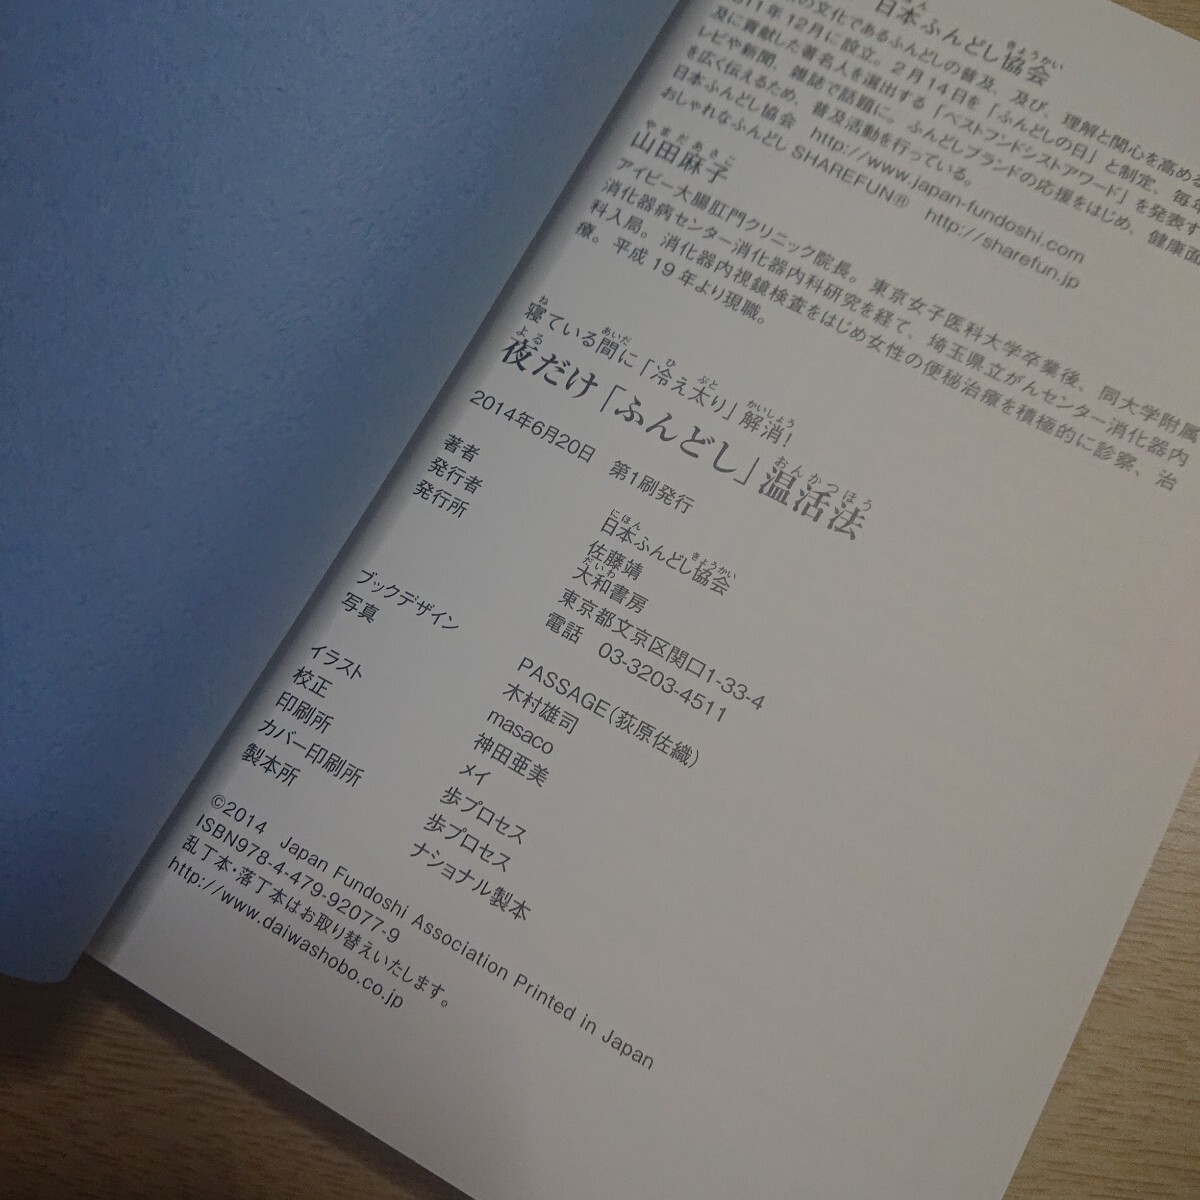 日本ふんどし協会
きょうかい
の文化であるふんどしの普及、及び、理解と関心を高める
11年12月に設立。2月14日を「ふんどしの日」と制定、毎年
及に貢献した著名人を選出する「ベストフンドシストアワード」を発表す
レビや新聞、雑誌で話題に。ふんどしブランドの応援をはじめ、健康面
を広く伝えるため、普及活動を行っている。
日本ふんどし協会 http://www.japan-fundoshi.com
おしゃれなふんどし SHAREFUN® http://sharefun.jp
やまだあさこ
山田麻子
アイビー大腸肛門クリニック院長。東京女子医科大学卒業後、同大学附属
消化器病センター消化器内科研究を経て、埼玉県立がんセンター消化器内
科入局。消化器内視鏡検査をはじめ女性の便秘治療を積極的に診察、治
療。平成19年より現職。
ね あいだ ひ ぶと かいしょう
寝ている間に「冷え太り」解消!
よる おんかつほう
夜だけ「ふんどし」温活法
2014年6月20日 第1刷発行
にほん きょうかい
著者 日本ふんどし協会
発行者 佐藤靖
だいわ
発行所 大和書房
東京都文京区関口1-33-4
電話 03-3203-4511
ブックデザイン PASSAGE(荻原佐織)
写真 木村雄司
masaco
イラスト 神田亜美
校正 メイ
印刷所 歩プロセス
カバー印刷所 歩プロセス
製本所 ナショナル製本
©2014 Japan Fundoshi Association Printed in Japan
ISBN978-4-479-92077-9
乱丁本・落丁本はお取り替えいたします。
http://www.daiwashobo.co.jp